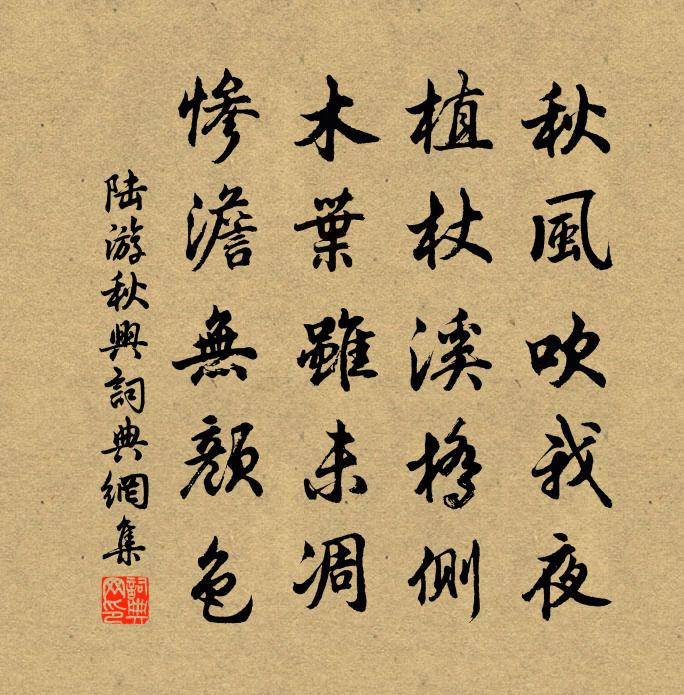 秋風吹我夜
植杖溪橋側
木葉雖未凋
慘澹無顏色
陸游秋興詞典網集
詞典網印